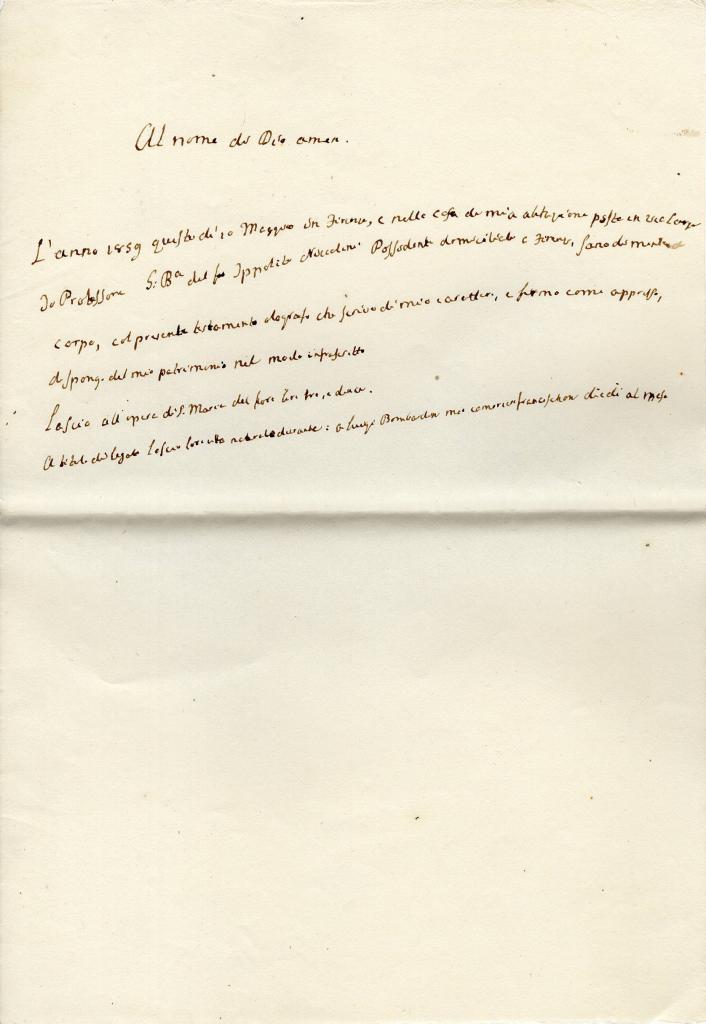 Al nome di Dio amen.
L'anno 1859 questo dì 10 Maggio in Firenze, e nella casa di mia abitazione posta in via Larga
Io Professore G: Bᵃ del fu Ippolito Niccolini Possidente domiciliato a Firenze, sano di mente e
corpo, col presente testamento olografo che scrivo di mio carattere, e firmo come appresso,
dispongo del mio patrimonio nel modo infrascritto
Lascio all'opera di S. Maria del fiore lire tre, e dieci.
A titolo di legato lascio loro vita naturale durante: a Luigi Bombardi mio cameriere francesconi dieci al mese